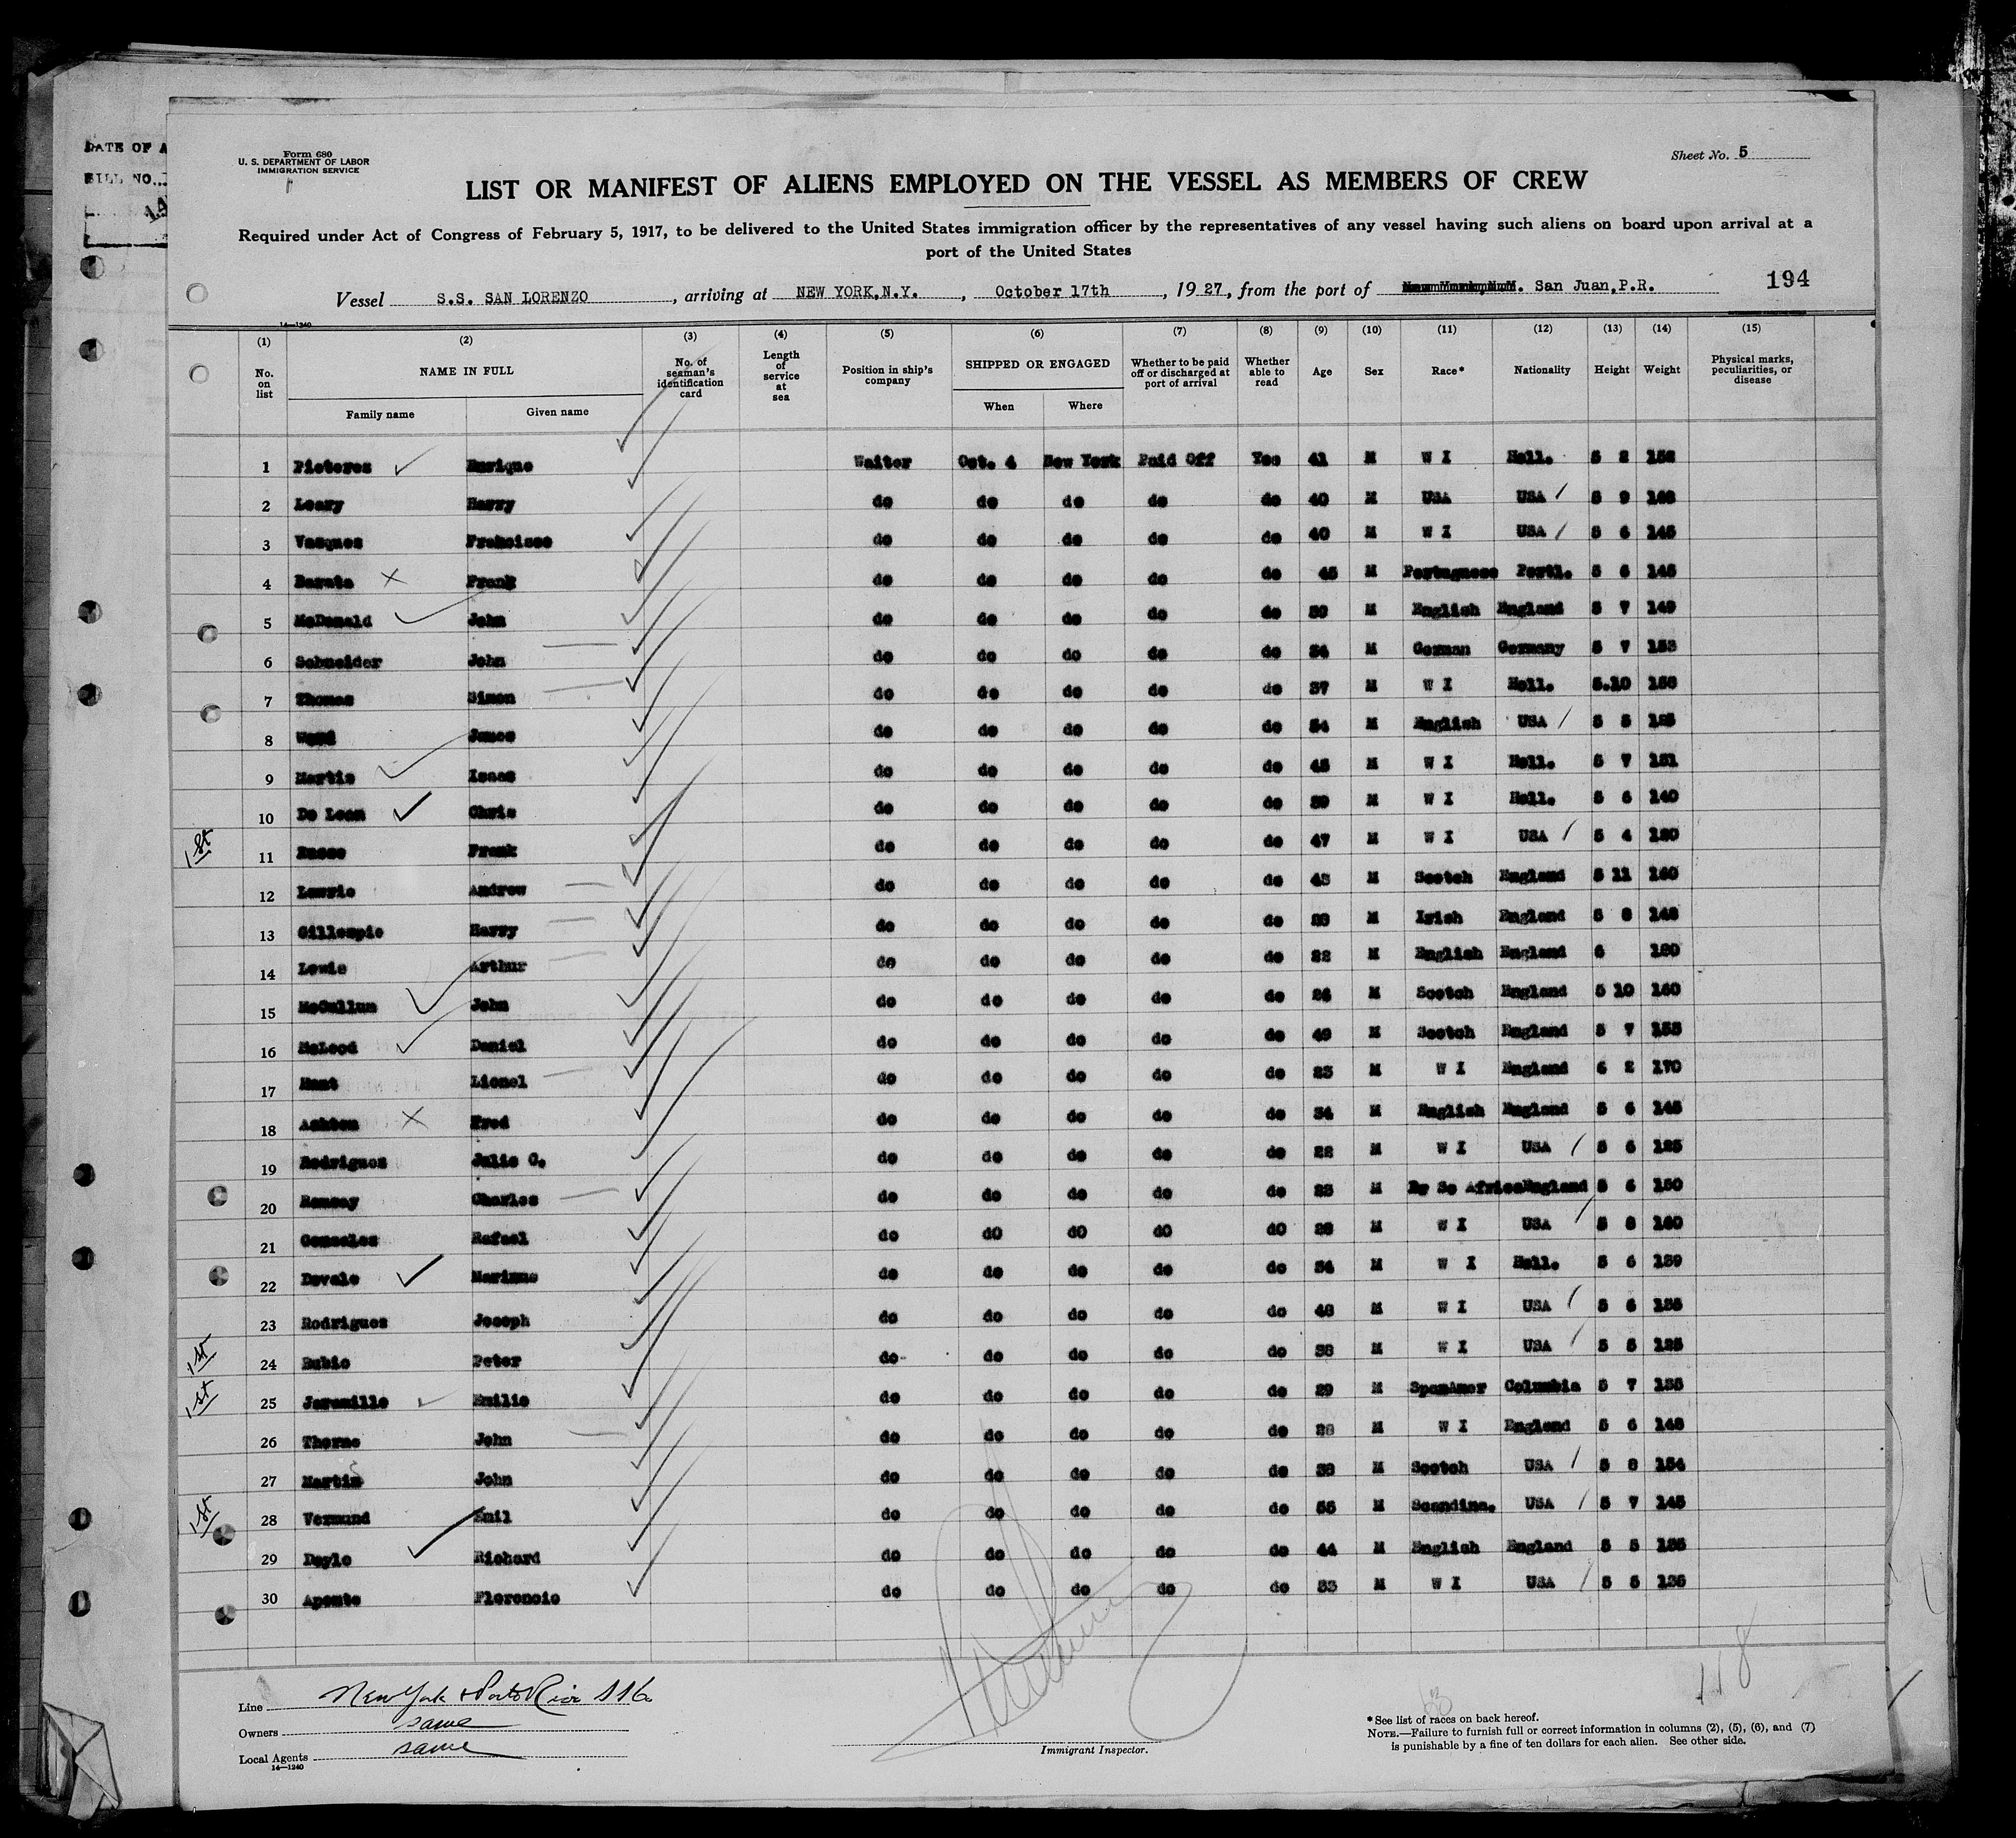 DATE OF A
BILL NO.
Form 680
U. S. DEPARTMENT OF LABOR
IMMIGRATION SERVICE
Sheet No. 5
LIST OR MANIFEST OF ALIENS EMPLOYED ON THE VESSEL AS MEMBERS OF CREW
Required under Act of Congress of February 5, 1917, to be delivered to the United States immigration officer by the representatives of any vessel having such aliens on board upon arrival at a
port of the United States
Vessel S.S. SAN LORENZO, arriving at NEW YORK,N.Y., October 17th, 1927, from the port of San Juan,P.R. 194
14—1240
(1) (2) (3) (4) (5) (6) (7) (8) (9) (10) (11) (12) (13) (14) (15)
No. on list NAME IN FULL No. of seaman's identification card Length of service at sea Position in ship's company SHIPPED OR ENGAGED Whether to be paid off or discharged at port of arrival Whether able to read Age Sex Race* Nationality Height Weight Physical marks, peculiarities, or disease
Family name Given name When Where
1 Pieteres Enrique Waiter Oct. 4 New York Paid Off Yes 41 M W I Holl. 5 2 158
2 Leary Harry do do do do do 40 M USA USA 5 9 168
3 Vasques Francisco do do do do do 40 M W I USA 5 6 145
4 Barata Frank do do do do do 45 M Portuguese Portl. 5 6 145
5 McDonald John do do do do do 39 M English England 5 7 149
6 Schneider John do do do do do 34 M German Germany 5 7 153
7 Thomas Simon do do do do do 37 M W I Holl. 5.10 158
8 James do do do do do 54 M English USA 5 5 125
9 Martis Isaac do do do do do 45 M W I Holl. 5 7 151
10 De Leon Chris do do do do do 39 M W I Holl. 5 6 140
1st 11 Russo Frank do do do do do 47 M W I USA 5 4 120
12 Lawrie Andrew do do do do do 43 M Scotch England 5 11 160
13 Gillespie Harry do do do do do M Irish England 5 8 148
14 Lewis Arthur do do do do do 22 M English England 6 180
15 McCullum John do do do do do 26 M Scotch England 5 10 160
16 McLeod Daniel do do do do do 49 M Scotch England 5 7 155
17 Hunt Lionel do do do do do 23 M W I England 6 2 170
18 Ashton Fred do do do do do 34 M English England 5 6 145
19 Rodriguez Julio C. do do do do do 22 M W I USA 5 6 125
20 Ramsay Charles do do do do do 23 M Br So Africa England 5 6 150
21 Gonzales Rafael do do do do do 28 M W I USA 5 8 160
22 Devale Mariano do do do do do 34 M W I Holl. 5 6 139
23 Rodriguez Joseph do do do do do 48 M W I USA 5 6 135
1st 24 Rubio Peter do do do do do 38 M W I USA 5 5 125
1st 25 Jaramillo Emilio do do do do do 29 M SpanAmer Columbia 5 7 135
26 Thorne John do do do do do 28 M W I England 5 6 148
27 Martin John do do do do do 38 M Scotch USA 5 8 154
1st 28 Vermund Emil do do do do do 55 M Scandina. USA 5 7 145
29 Doyle Richard do do do do do 44 M English England 5 5 135
30 Aponte Florencio do do do do do 33 M W I USA 5 5 136
118
Line New York & Porto Rico SS Co
Owners same
Local Agents same
14—1240
Immigrant Inspector.
*See list of races on back hereof.
NOTE.—Failure to furnish full or correct information in columns (2), (5), (6), and (7)
is punishable by a fine of ten dollars for each alien. See other side.